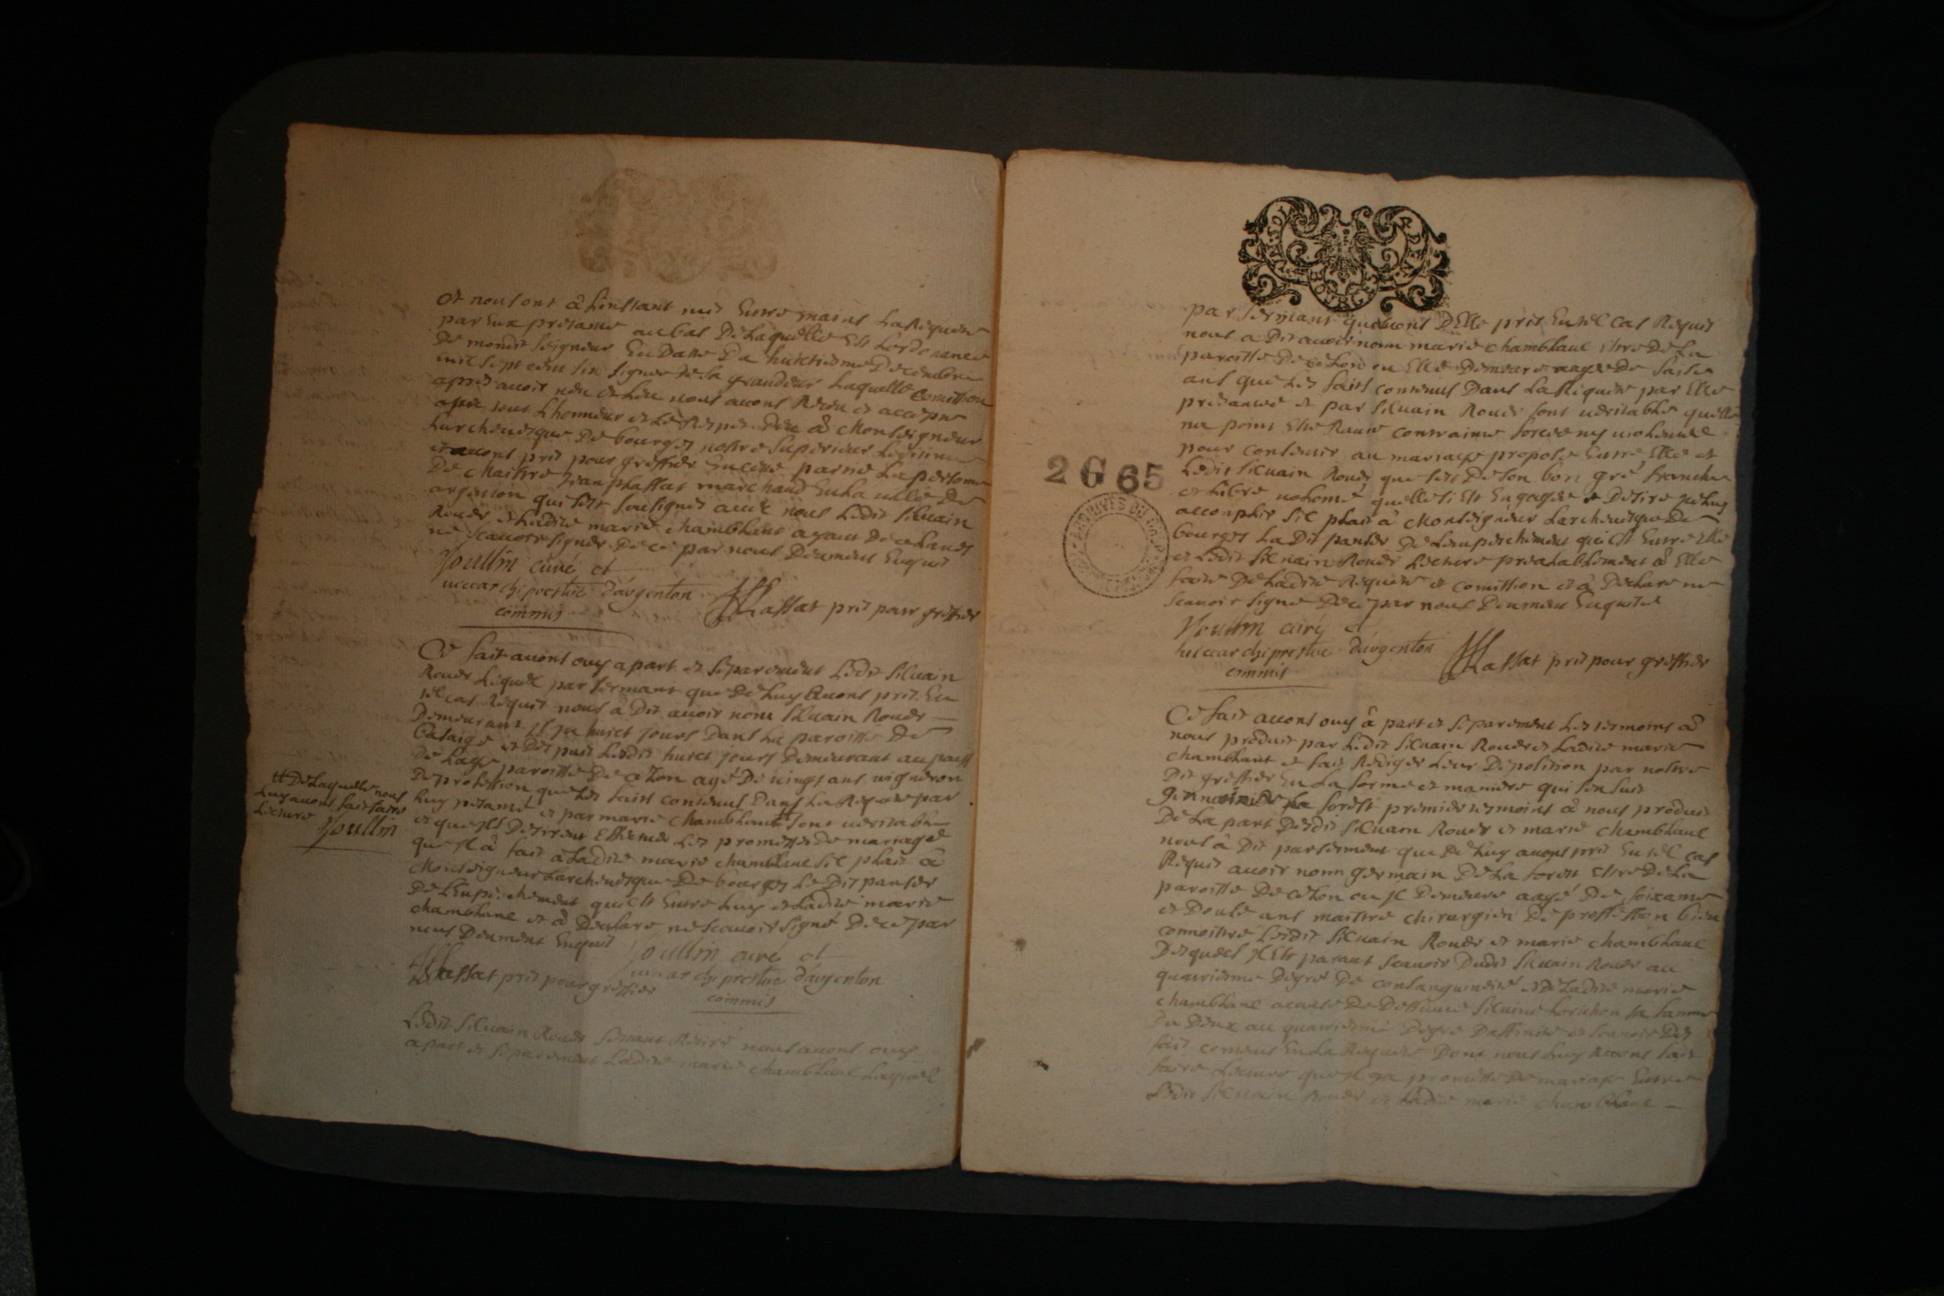 et nous ont â Linstant mis Entre mains La Requeste
par Eux presantée au bas De Laquelle Est Lordonnance
De mondit seigneur En Datte Du huictiesme Decembre
mil sept cent six signée de sa grandeur Laquelle Comission
apres avoir veu et Leu nous avons Receu et acceptée
avec tout Lhonneur et Le Respec deu â Monseigneur
Larchevesque De bourges nostre superieur Legitime
et avons pris pour greffier En ceste partie La personne
De Maistre Jean plassat marchand En La ville De
argenton qui sest soussigné avec nous Ledit silvain
Rouer et Ladite marie chamblant ayant Declaré
ne scavoir signer De ce par nous Deument Enquis
Joullin curé et
vicear chiprestre d'argenton
commis
JPlassat pris pour greffier
Ce fait avons ouy apart et separement Ledit silvain
Rouer Lequel par serment que De Luy avons pris En
tel cas Requis nous â Dit avoir nom silvain Rouer
Demeurant Il y a huict jours Dans La paroisse De
et Depuis Lesdits huict jours Demeurant au
De paroisse De ceLon agé De vingt ans vigneron
De profession que Les faits contenus Dans La Requeste par
Luy presantée et par marie chamblant tt sont veritable
et que Ils Desirent Effectuer Les promesses de mariage
que Il â fait â Ladite marie chamblant sil plait â
Monseigneur Larchevesque De bourges Le Dispanser
De Lenpechement qui Est Entre Luy et Ladite marie
chamblant et â Declaré ne scavoir signé De ce par
nous Deument Enquis
Joullin curé et
vicear chiprestre d'argenton
commis
JPlassat pris pour greffier
tt De Laquelle nous
Luy avons fait faire
Lecture Joullin
Ledit silvain Rouer s'estant Retiré nous avons ouy
apart et separement Ladite marie chamblant Laquelle
par serment que avons DElle pris En tel cas Requis
nous a Dit avoir nom marie chamblant Estre De La
paroisse De ceLon ou Elle Demeure aagée De
ans que Les faits contenus Dans La Requeste par Elle
presantée et par silvain Rouer sont veritable quelle
na point Esté Ravie contrainte forcée ny viollentée
pour contenir au mariage proposé Entre Elle et
Ledit silvain Rouer que cest De son bon gré franche
et Libre volonté quelle sest Engagée et Desire
acconplir sil plait â Monseigneur Larchevesque De
bourges La Dispanser De Lenpeschement qui Est Entre Elle
et Ledit silvain Rouer Lecture prealablement â Elle
faite De Ladite Requeste et comission et â Declaré ne
scavoir signé De ce par nous Deument Enquise
2 G 65
Joullin curé et
vicear chiprestre d'argenton
commis
JPlassat pris pour greffier
Ce fait avons ouy â part et separement Les tesmoins â
nous produit par Ledit silvain Rouer et Ladite marie
chamblant et fait Rediger Leur Deposition par nostre
Dit greffier En La forme et maniere qui sensuit
Germain de La forest premier tesmoins â nous produit
De La part Desdits silvain Rouer et marie chamblant
nous â Dit par serment que De Luy avons pris En tel cas
Requis avoir nom germain De La forest Estre De La
paroisse De ceLon ou Il Demeure aagé De soixante
et Douse ans maistre chirurgien De proffession bien
connoitre Lesdits silvain Rouer et marie chamblant
Desquels Il Est parant scavoir Dudit silvain Rouer au
quatriesme Degré De consanguinité et De Ladite marie
chamblant acause De Deffunte silvine sa famme
Du Deux au quatriesme Degré Daffinité et scavoir Des
fait contenus En La Requeste Dont nous Luy avons fait
faire Lecture que Il y a promesse De mariage Entre
Ledit silvain Rouer et Ladite marie chamblant